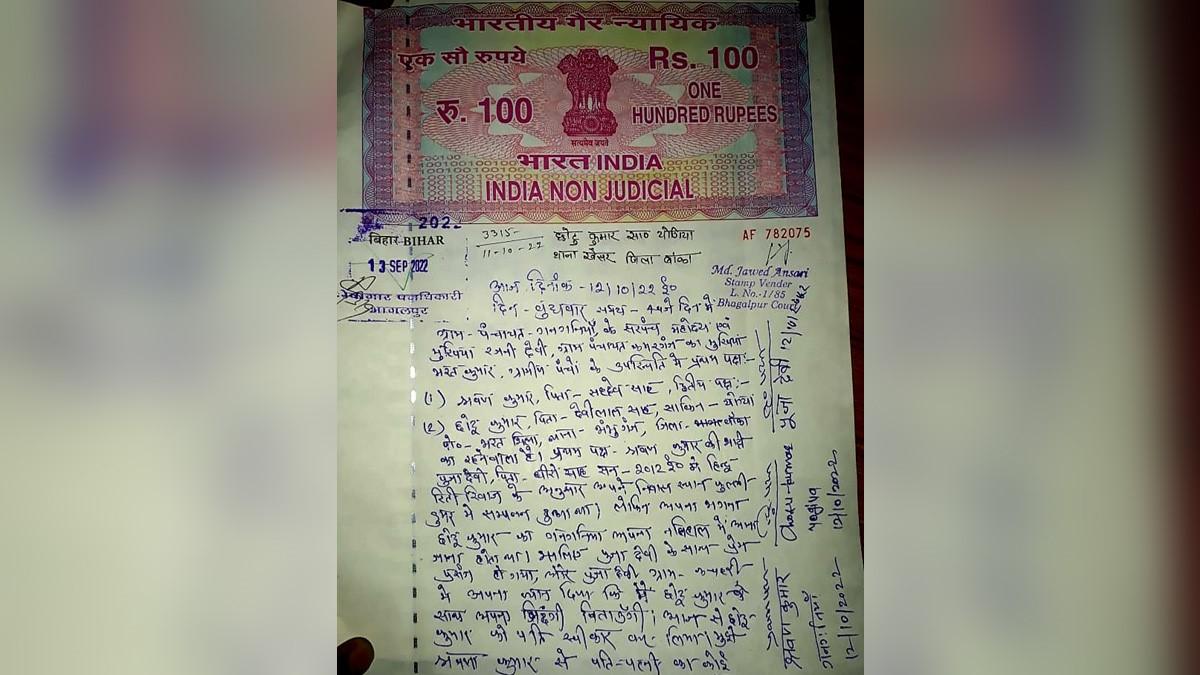 भारतीय गैर न्यायिक
एक सौ रुपये
Rs. 100
रु. 100
ONE
HUNDRED RUPEES
सत्यमेव जयते
भारत INDIA
INDIA NON JUDICIAL
2022
बिहार BIHAR
13 SEP 2022
भागलपुर
3315-
11-10-22
छोटु कुमार साo योगिया
थाना खेसर जिला बांका
AF 782075
Md. Jawed Ansari
Stamp Vender
L. No.-1/85
Bhagalpur Court
आज दिनांक - 12/10/22 ई०
दिन - बुधवार समय - 4 बजे दिन में
ग्राम - पंचायत - गनगनियाँ, के सरपंच महोदय एवं
मुखिया रजनी देवी, ग्राम पंचायत कमरगंज का मुखिया
भरत कुमार, ग्रामीण पंचों के उपस्थिति में प्रथम पक्ष:-
(1) श्रवण कुमार, पिता - सहदेव साह, द्वितीय पक्ष:-
(2) छोटू कुमार, पिता - देवीलाल साह, साकिन - योग्या
पो०- भरत शिला, थाना - शंभुगंज, जिला - बांका
का रहनेवाला है। प्रथम पक्ष - श्रवण कुमार की शादी
पुजा देवी, पिता - साह सन - 2012 ई० में हिन्दू
रिती रिवाज के अनुसार अपने निवास स्थान
में सम्पन्न हुआ था। लेकिन अपना भगना
छोटू कुमार का गनगनिया अपना ननिहाल में आना
जाना होता था। पुजा देवी के साथ प्रेम
प्रसंग हो गया, और पुजा देवी ग्राम - कचहरी
में अपना ब्यान दिया कि मैं छोटू कुमार के
साथ अपना जिंदगी बिताऊँगी। आज से छोटू
कुमार को पति स्वीकार कर लिया। मुझे
श्रवण कुमार से पति-पत्नी का कोई
पूजा देवी 12/10/2022
Chotu kumar
yogiya
12/10/2022
श्रवण कुमार
गनगनियाँ
12/10/2022